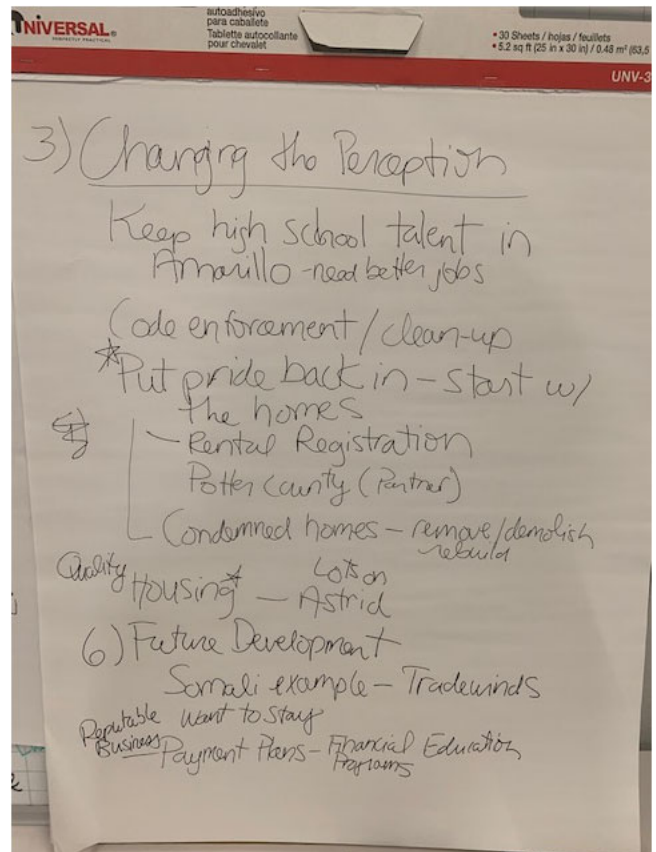 UNIVERSAL®
PERFECTLY PRACTICAL
autoadhesivo
para caballete
Tablette autocollante
pour chevalet
• 30 Sheets / hojas / feuillets
• 5.2 sq ft (25 in x 30 in) / 0.48 m² (63,5
UNV-3
3) Changing the Perception
Keep high school talent in
Amarillo - need better jobs
Code enforcement / clean-up
*Put pride back in - start w/
the homes
- Rental Registration
Potter County (Partner)
Condemned homes - remove/demolish
rebuild
Quality Housing* - Lots on
Astrid
6) Future Development
Somali example - Tradewinds
Want to stay
Reputable
Business
Payment Plans - Financial Education
Programs